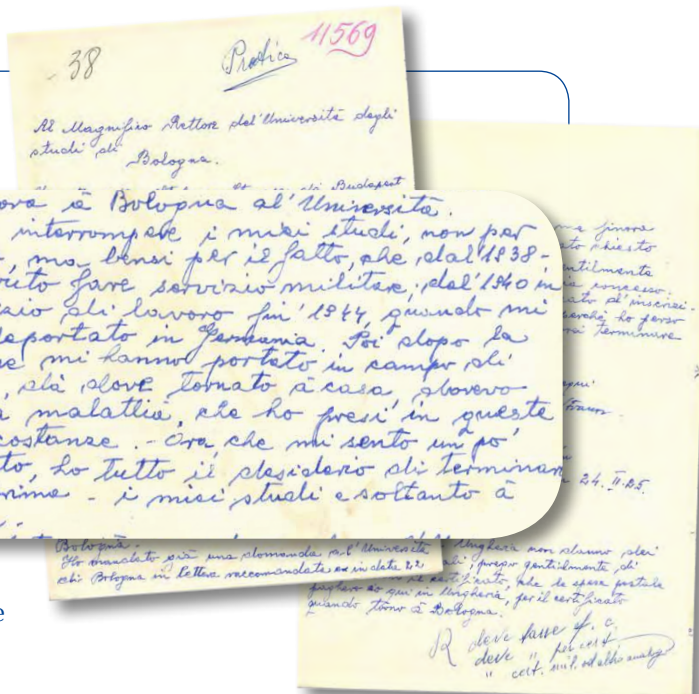 38 Pratica 11569
Al Magnifico Rettore del'Università degli
studi di
Bologna.
di Budapest
ora à Bologna al' Università.
interrompere i miei studi, non per
, ma bensi per il fatto, che, dal' 1938-
uto fare servizio militare; dal' 1940 in
izio di lavoro fin' 1944, quando mi
deportato in Germania. Poi dopo la
e mi hanno portato in campo di
, dà dove tornato à casa, dovevo
a malattia, che ho presi in queste
costanze. - Ora che mi sento un pò
to, ho tutto il desiderio di terminar
prima - i miei studi e soltanto à
Bologna.
Ho mandato già una domanda a l'Università
di Bologna in lettera raccomandata in data 22
finora
chiesto
gentilmente
concesso.
d'inscrizi.
perchè ho perso
terminare
qui
24. II. 25.
Ungheria non danno
prego gentilmente di
il certificato, che la spesa postale
pagherò qui in Ungheria, per il certificato
quando torno à Bologna.
R deve tasse
deve " per cert.
" cert. mil. od altro analogo
e